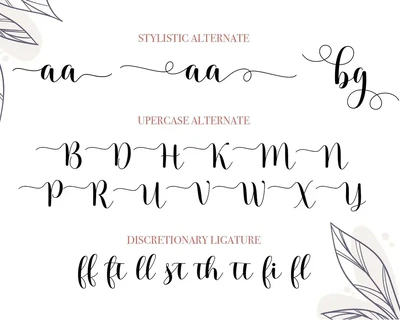 STYLISTIC ALTERNATE
aa aa bg
UPERCASE ALTERNATE
B D H K M N
P R U V W X Y
DISCRETIONARY LIGATURE
ff ft ll st th tt fi fl